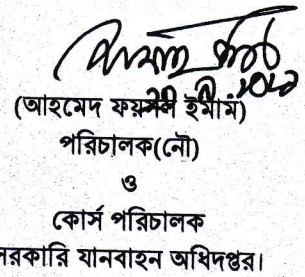 (আহমেদ ফয়সল ইমাম)
পরিচালক(নৌ)
ও
কোর্স পরিচালক
সরকারি যানবাহন অধিদপ্তর।